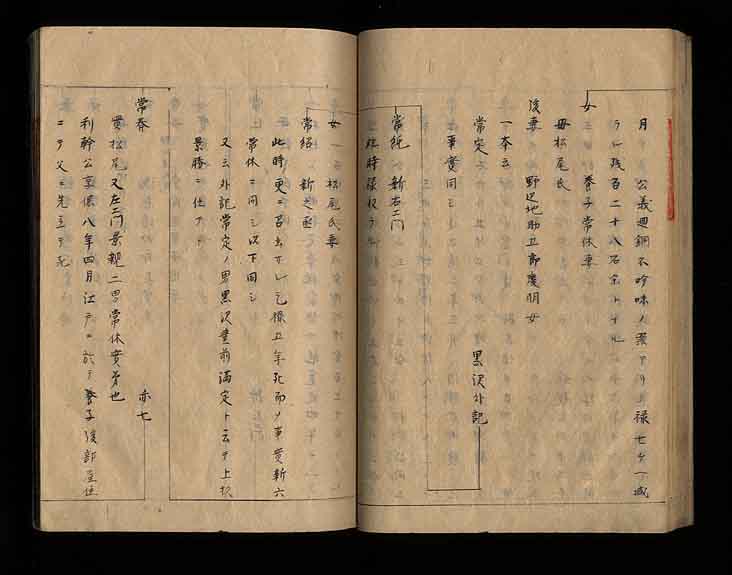 月　公義廻銅不吟味ノ義アリ上禄七ケ一減
ラレ残百二十八石余ト十九
女　養子常休妻
毋松尾氏
後妻　野辺地助卫郎慶明女
一本ニ　黒沢外記
常定
事實同シ
常純　新右エ門
臨時張役ヲ
女　松尾氏妻
常紹　新之亟
此時更ニ召出サレ元禄五年死而ノ事實新六
常休ニ同シ以下同シ
又云外記常定ノ男黒沢豊前満定ト云テ上杦
景勝ニ仕フ
常春　亦七
實松尾又左エ門景親二男常休實弟也
利幹公享保八年四月江戸ニ於テ養子後部屋住
ニテ父ニ先立テ死